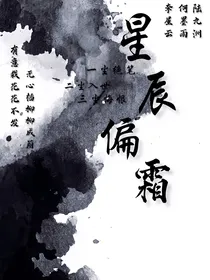 陆九洲
何墨雨
李星云
星辰偏霜
一尘绝笔
二尘入世
三尘恨
无心插柳柳成荫
有意栽花花不发